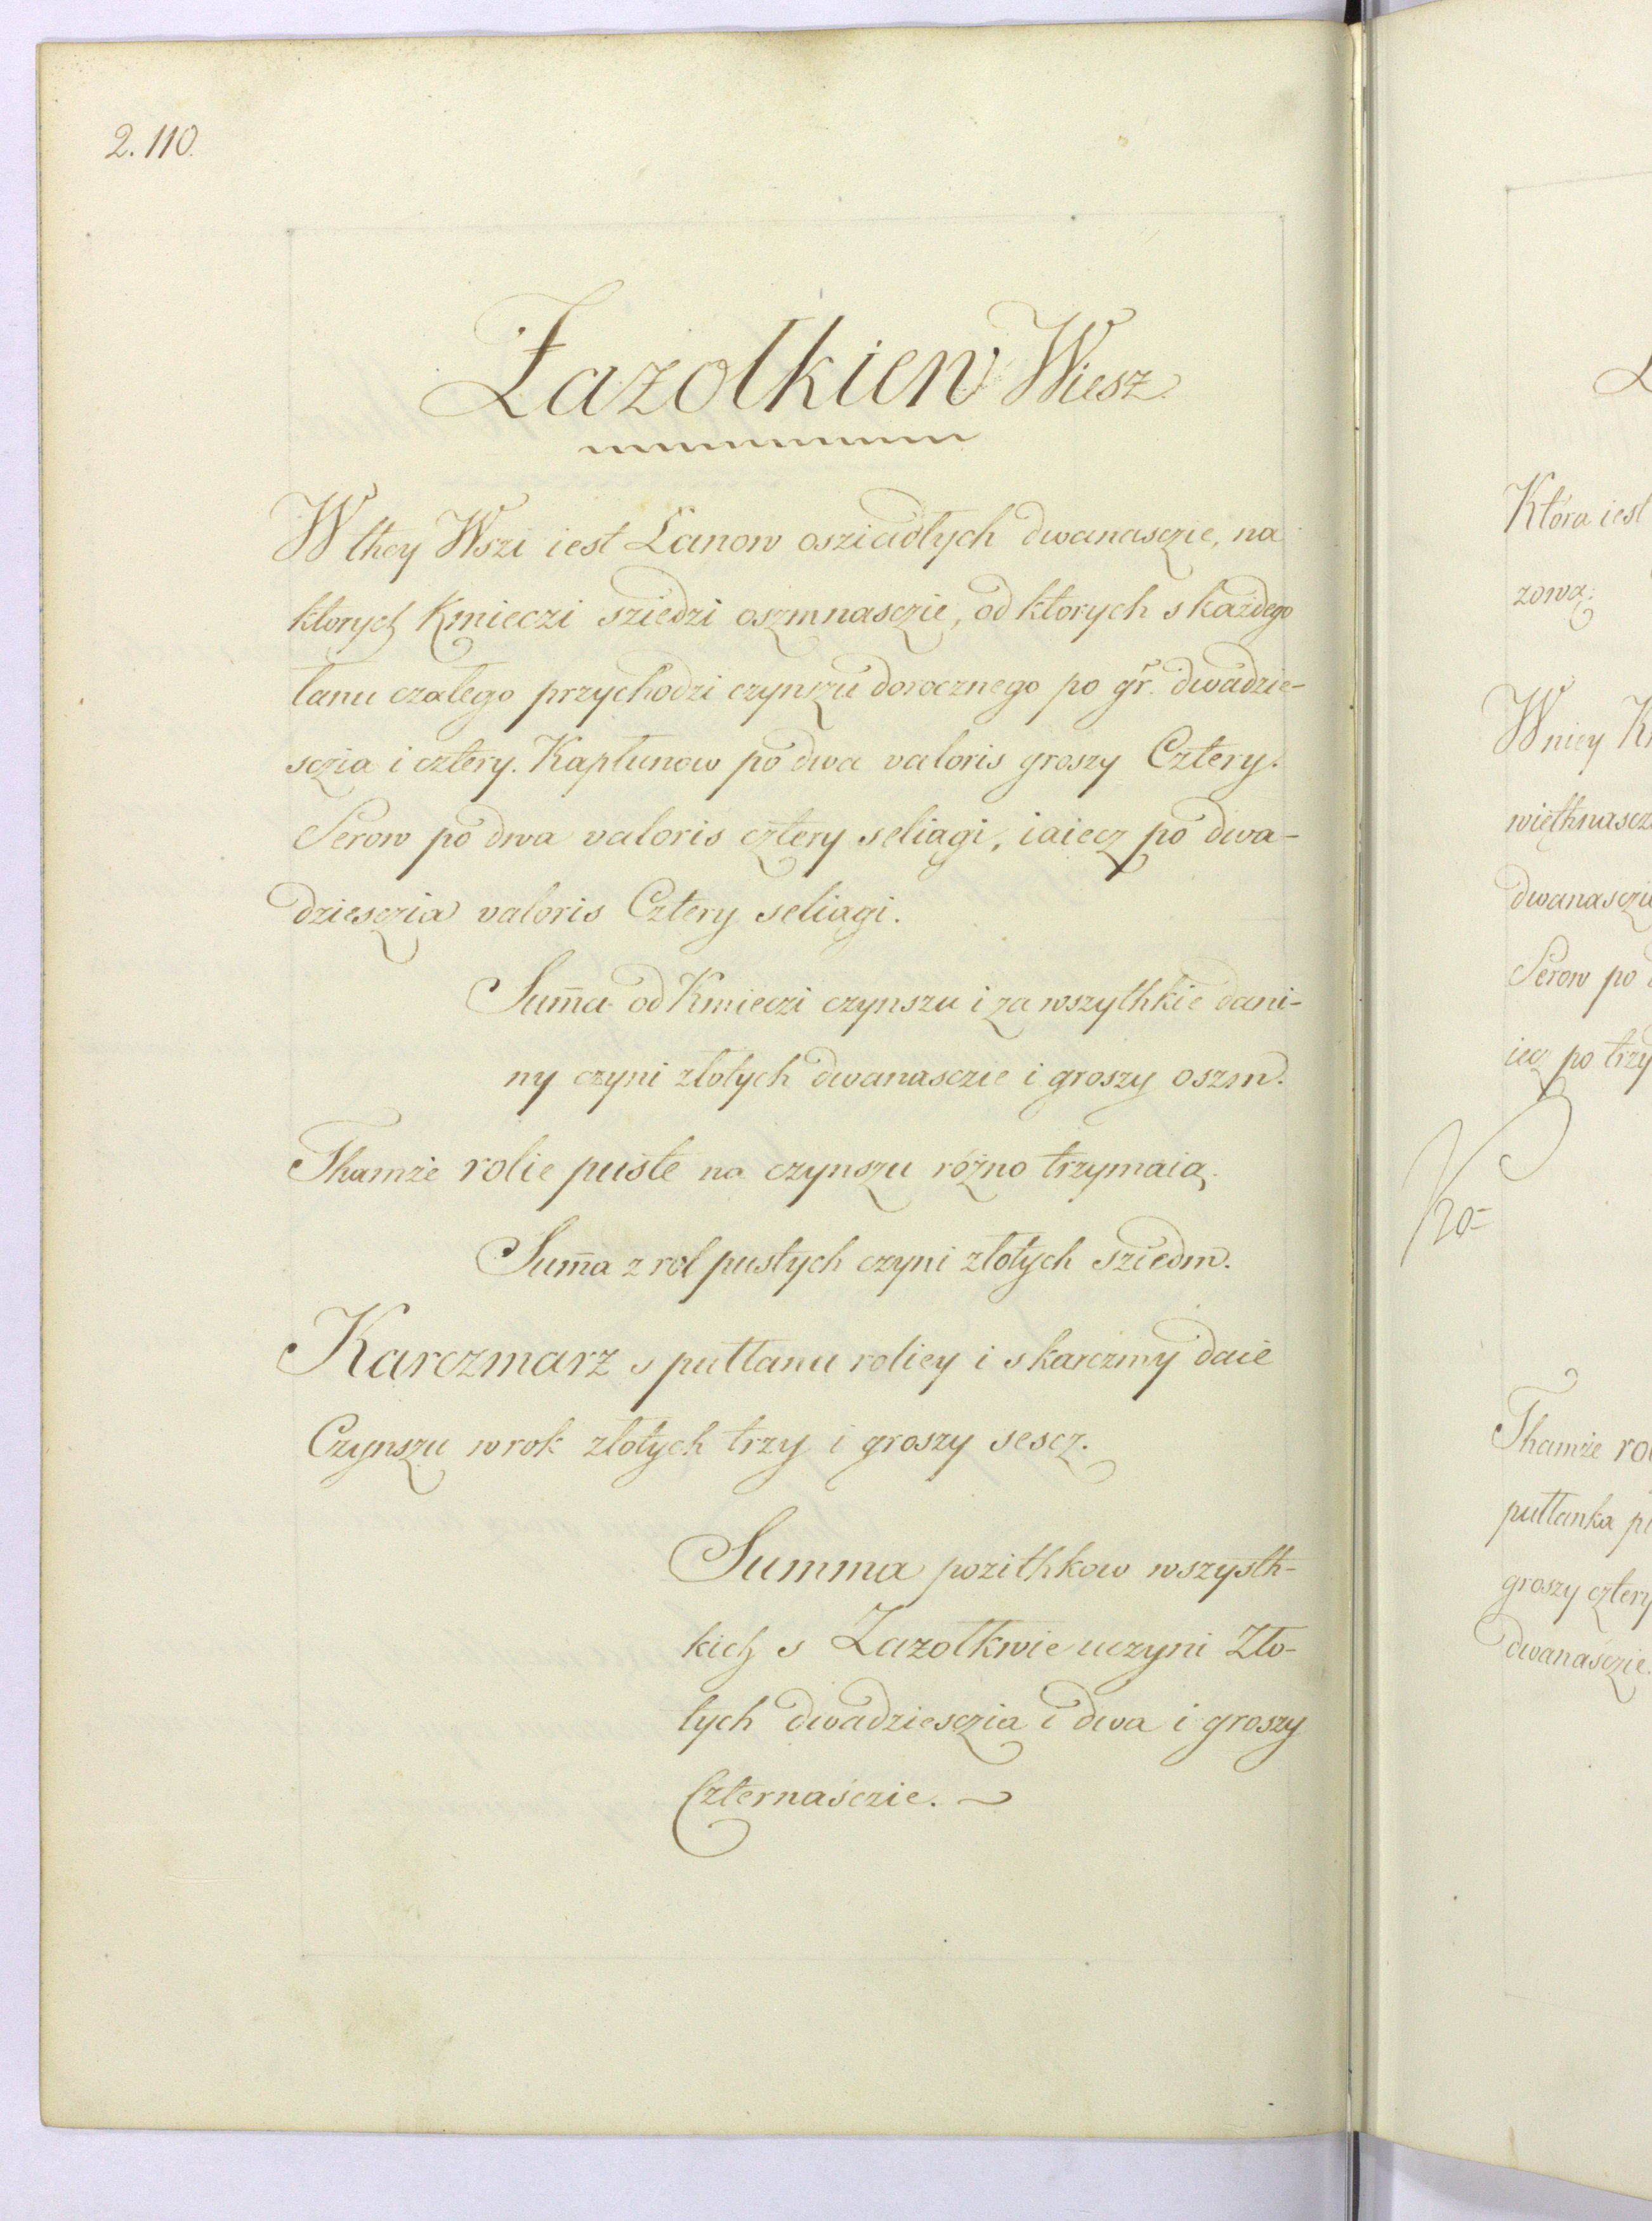 2.110.
Zazolkiew Wiesz.
W they Wszi iest Łanow osziadłych dwanasczie, na
ktorych Kmieczi sziedzi oszmnasczie, od ktorych s każdego
łanu czałego przychodzi czynszu dorocznego po gr. dwadzie-
sczia i cztery. Kapłunow po dwa valoris groszy Cztery.
Serow po dwa valoris cztery seliagi, iaiecz po dwa-
dziesczia valoris Cztery seliagi.
Sum̄a od Kmieczi czynszu i za wszythkie dani-
ny czyni złotych dwanasczie i groszy oszm.
Thamże rolie puste na czynszu różno trzymaią.
Sum̄a z rol pustych czyni złotych sziedm.
Karczmarz s pułłanu roliey i s karczmy daie
Czynszu w rok złotych trzy i groszy sescz.
Summa pozithkow wszysth-
kich s Zazolkwie uczyni Zło-
tych dwadziesczia i dwa i groszy
Czternasczie.
Która iest
zową.
W niey
wiethnascz
dwanasczie
Serow po
iecz po trzy
Ko-
Thamże
pułłanka
groszy cztery
dwanasczie.